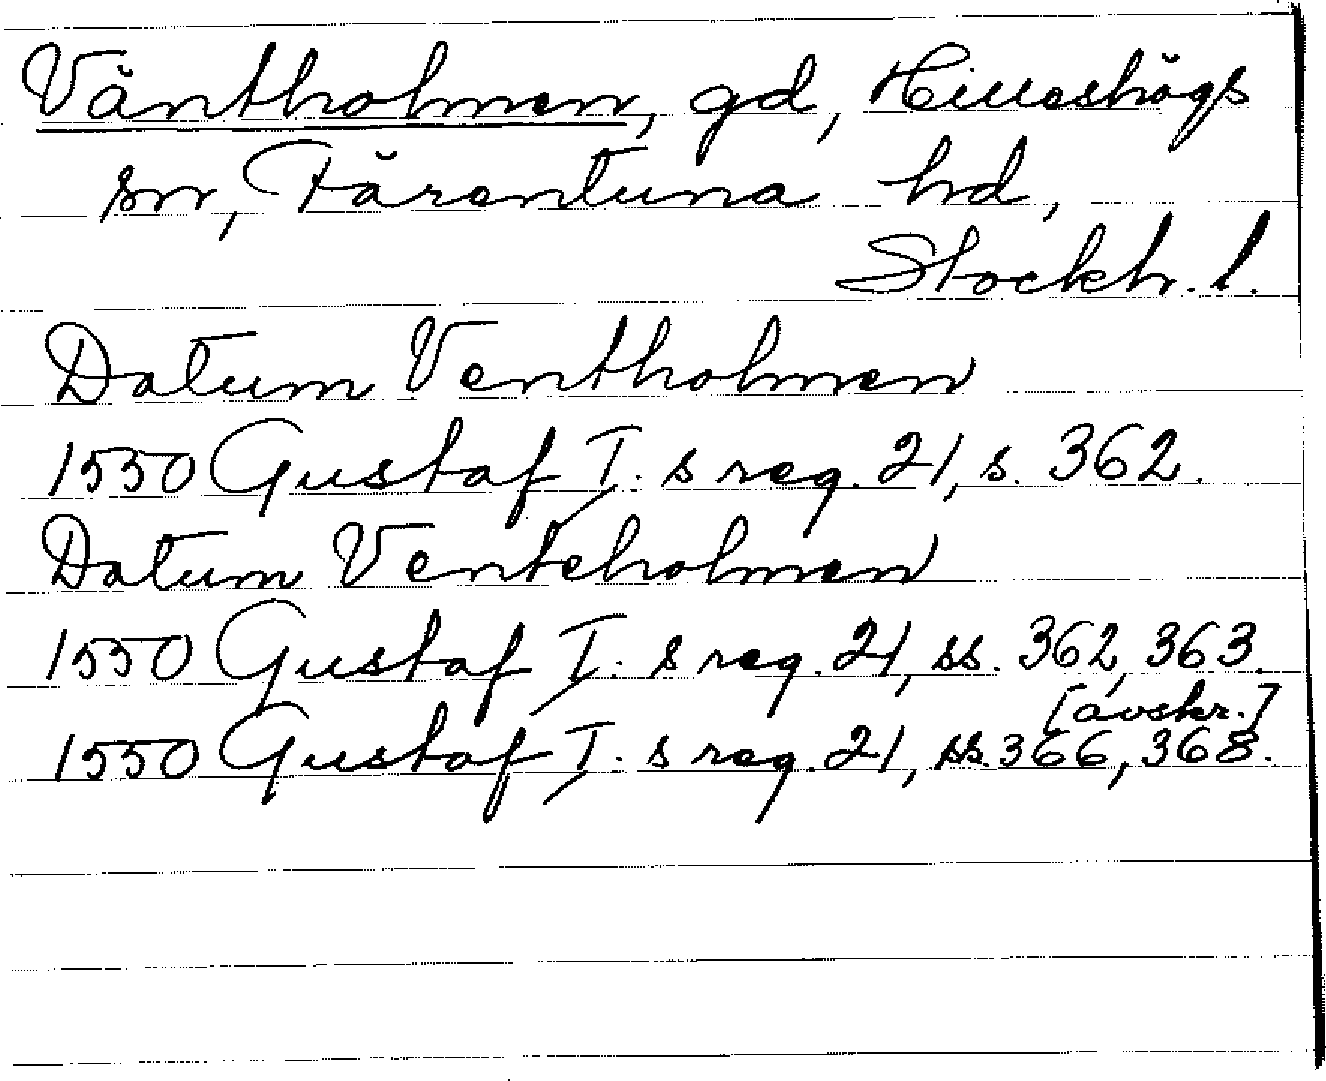 Väntholmen, gd, Hilleshögs
sn, Färentuna hd,
Stockh. l.
Datum Ventholmen
1550 Gustaf I. s reg. 21, s. 362.
Datum Venteholmen
1550 Gustaf I. s reg. 21, ss. 362, 363.
[avskr.]
1550 Gustaf I. s reg. 21, ss. 366, 368.